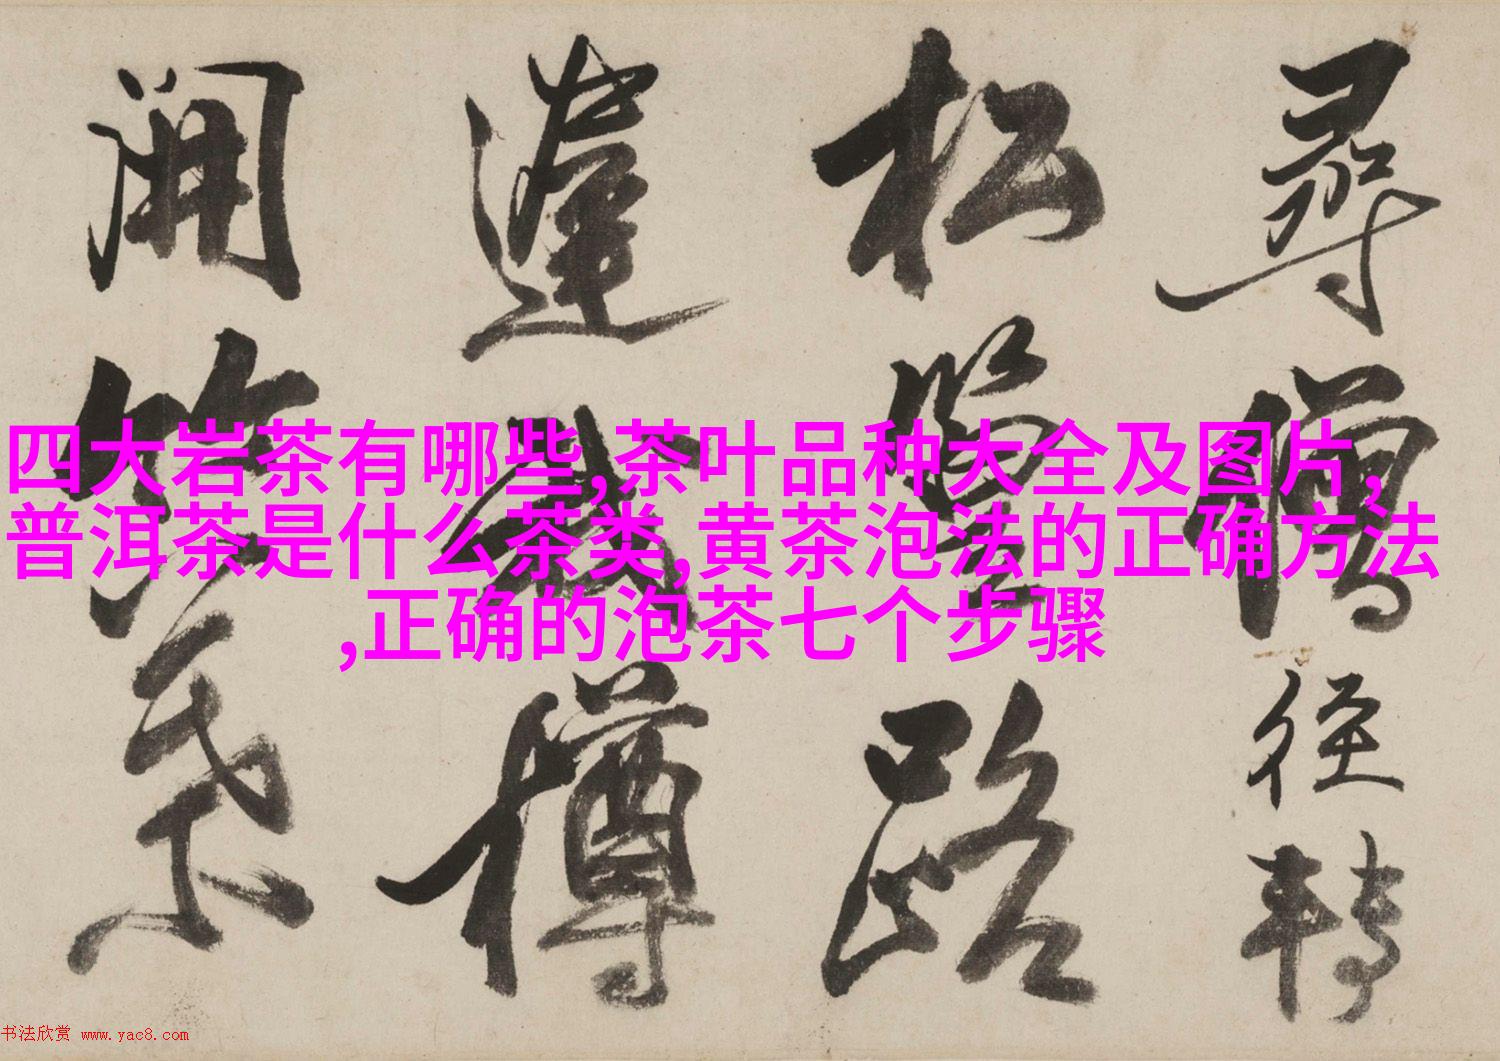 尋僧径轉
松路
樽
開
四大岩茶有哪些,茶叶品种大全及图片,
普洱茶是什么茶类,黄茶泡法的正确方法
,正确的泡茶七个步骤
书法欣赏 www.yac8.com